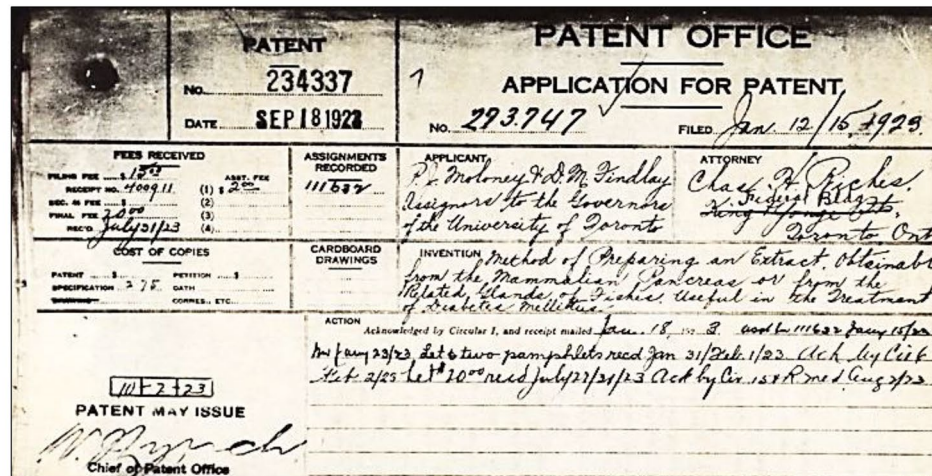 PATENT
No. 234337
DATE SEP 18 1923
PATENT OFFICE
APPLICATION FOR PATENT
No. 293.747 FILED Jan. 12/15 1923.
FEES RECEIVED
FILING FEE $ 15.00 ASST. FEE
RECEIPT NO. 400911 (1) $ 2.00
SEC. 46 FEE (2)
FINAL FEE 20.00 (3)
REC'D July 21/23 (4)
ASSIGNMENTS RECORDED
111632
APPLICANT
P. J. Moloney & D. M. Findlay
Assignors to the Governors
of the University of Toronto
ATTORNEY
Chas. H. Riches.
Federal Bldg
King & Yonge Sts,
Toronto Ont
COST OF COPIES
PATENT $ PETITION $
SPECIFICATION 2 75 OATH
DRAWING CORRES., ETC.
CARDBOARD DRAWINGS
INVENTION Method of Preparing an Extract, Obtainabl
from the Mammalian Pancreas or from the
Related Glands of Fishes, Useful in the Treatment
of Diabetes Mellitus.
ACTION
Acknowledged by Circular I, and receipt mailed Jan. 18, 3 111632 Jany 15/23
Jany 23/23 Let & two pamphlets recd Jan 31/Feb. 1/23 Ack by Cir 6
Feb 2/23 Let $20.00 recd July 27/31/23 Ack by Cir. med Aug 2/23
111-2-23
PATENT MAY ISSUE
Chief of Patent Office